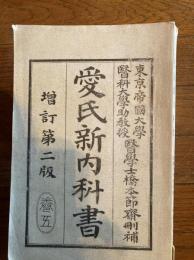 東京帝國大學
醫科大學助教授 醫學士橋本節齋刪補
愛氏新内科書
增訂第二版
卷五